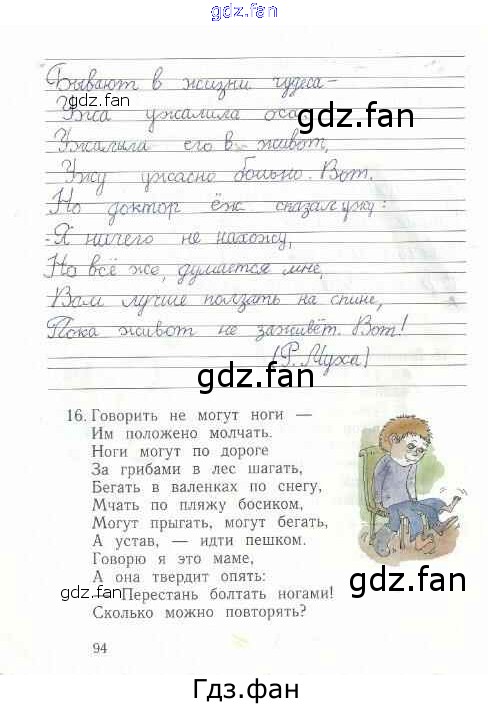 gdz.fan
Бывают в жизни чудеса –
Ужа ужалила оса
gdz.fan
gdz.fan
Ужалила его в живот,
Ужу ужасно больно. Вот.
Но доктор ёж сказал ужу:
-Я ничего не нахожу,
Но всё же, думается мне,
Вам лучше ползать на спине,
Пока живот не заживёт. Вот!
(Р. Муха)
gdz.fan
16. Говорить не могут ноги —
Им положено молчать.
Ноги могут по дороге
За грибами в лес шагать,
Бегать в валенках по снегу,
Мчать по пляжу босиком,
Могут прыгать, могут бегать,
А устав, — идти пешком.
Говорю я это маме,
А она твердит опять:
gdz.fan
gdz.fan
Перестань болтать ногами!
Сколько можно повторять?
94
Гдз.фан